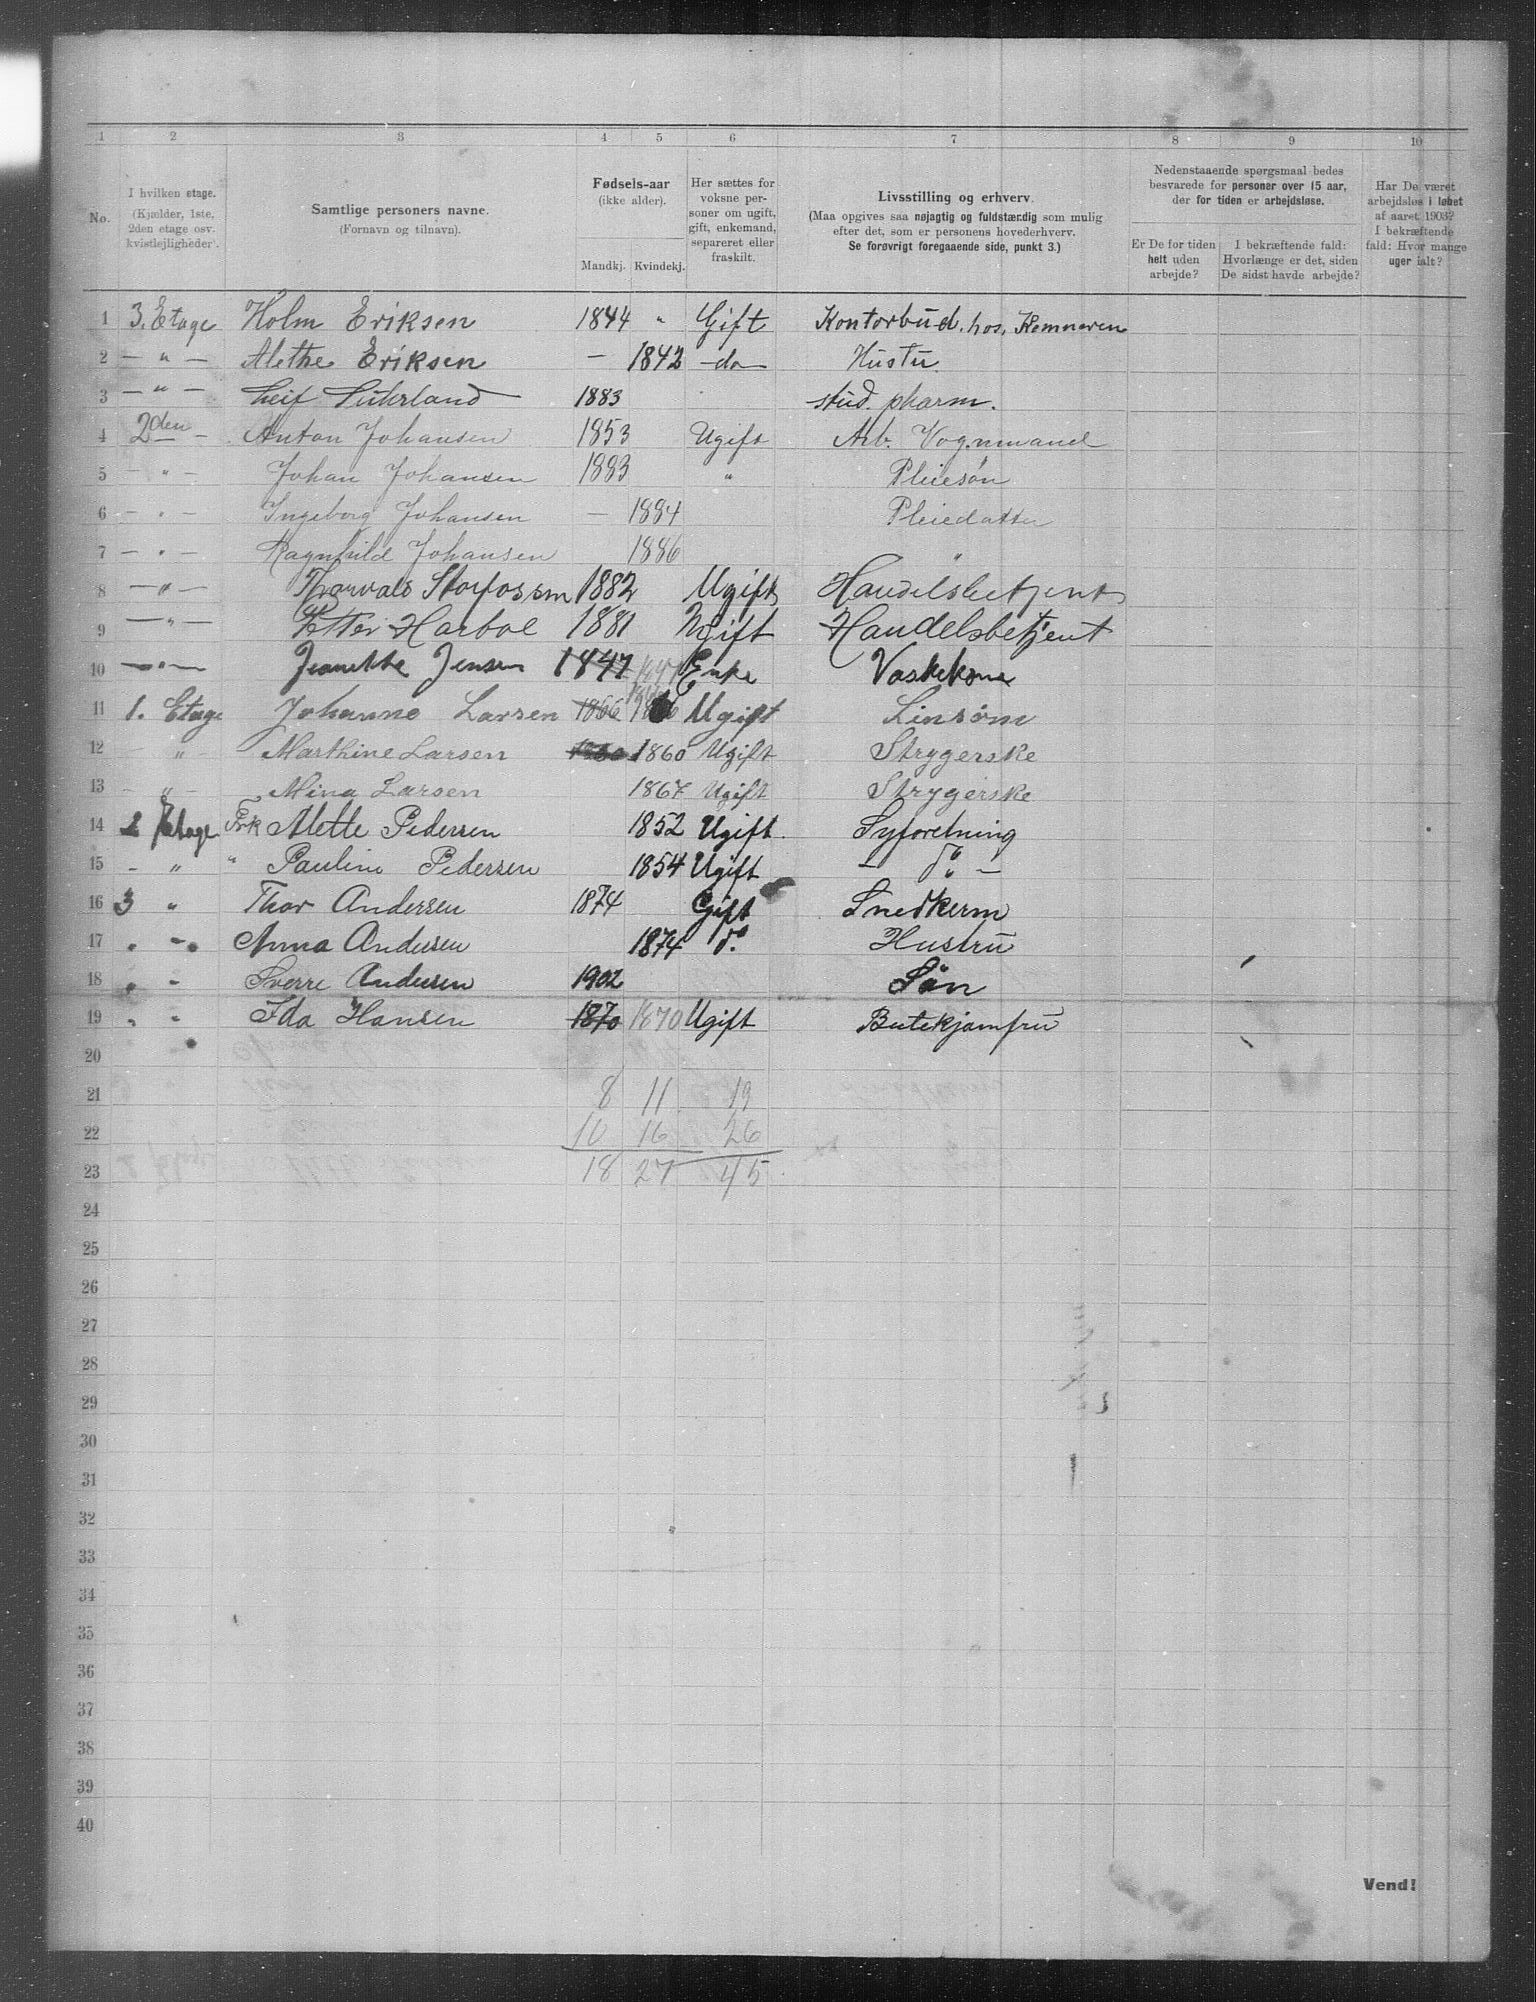 1 2 3 4 5 6 7 8 9 10
No.
I hvilken etage.
(Kjælder, 1ste,
2den etage osv.
kvistlejligheder).
Samtlige personers navne.
(Fornavn og tilnavn).
Fødsels-aar
(ikke alder).
Mandkj. Kvindekj.
Her sættes for
voksne per-
soner om ugift,
gift, enkemand,
separeret eller
fraskilt.
Livsstilling og erhverv.
(Maa opgives saa nøjagtig og fuldstændig som mulig
efter det, som er personens hovederhverv.
Se forøvrigt foregaaende side, punkt 3.)
Nedenstaaende spørgsmaal bedes
besvarede for personer over 15 aar,
der for tiden er arbejdsløse.
Er De for tiden
helt uden
arbejde?
I bekræftende fald:
Hvorlænge er det, siden
De sidst havde arbejde?
Har De været
arbejdsløs i løbet
af aaret 1903?
I bekræftende
fald: Hvor mange
uger ialt?
1 3. Etage Holm Eriksen 1844 " Gift Kontorbud. hos, Kemneren
2 — " — Alethe Eriksen — 1842 — do — Hustu.
3 — " — Leif Suhrland 1883 stud. pharm.
4 2den — Anton Johansen 1853 Ugift Arb. Vognmand
5 — " — Johan Johansen 1883 " Pleiesøn
6 — " — Ingeborg Johansen — 1884 Pleiedatter
7 — " — Ragnhild Johansen 1886 "
8 — " — Thorvald 1882 Ugift Handelsbetjent
9 — " — Petter Harboe 1881 Ugift Handelsbetjent
10 — " — Jeanette Jensen 1847 1847 Enke Vaskekone
11 1. Etage Johanne Larsen 1866 1866 Ugift Linsøm
12 — " — Marthine Larsen 1860 1860 Ugift Strygerske
13 — " — Mina Larsen 1867 Ugift Strygerske
14 2 Etage Frk Alette Pedersen 1852 Ugift. Syforetning
15 - " " Pauline Pedersen 1854 Ugift — do —
16 3 " Thor Andersen 1874 Gift Snedkerm
17 " - " Anna Andersen 1874 do. Hustru
18 " - Sverre Andersen 1902 Søn
19 " " Ida Hansen 1870 1870 Ugift Butikjomfru
20 "
21 8 11 19
22 10 16 26
23 18 27 45
24
25
26
27
28
29
30
31
32
33
34
35
36
37
38
39
40
Vend!